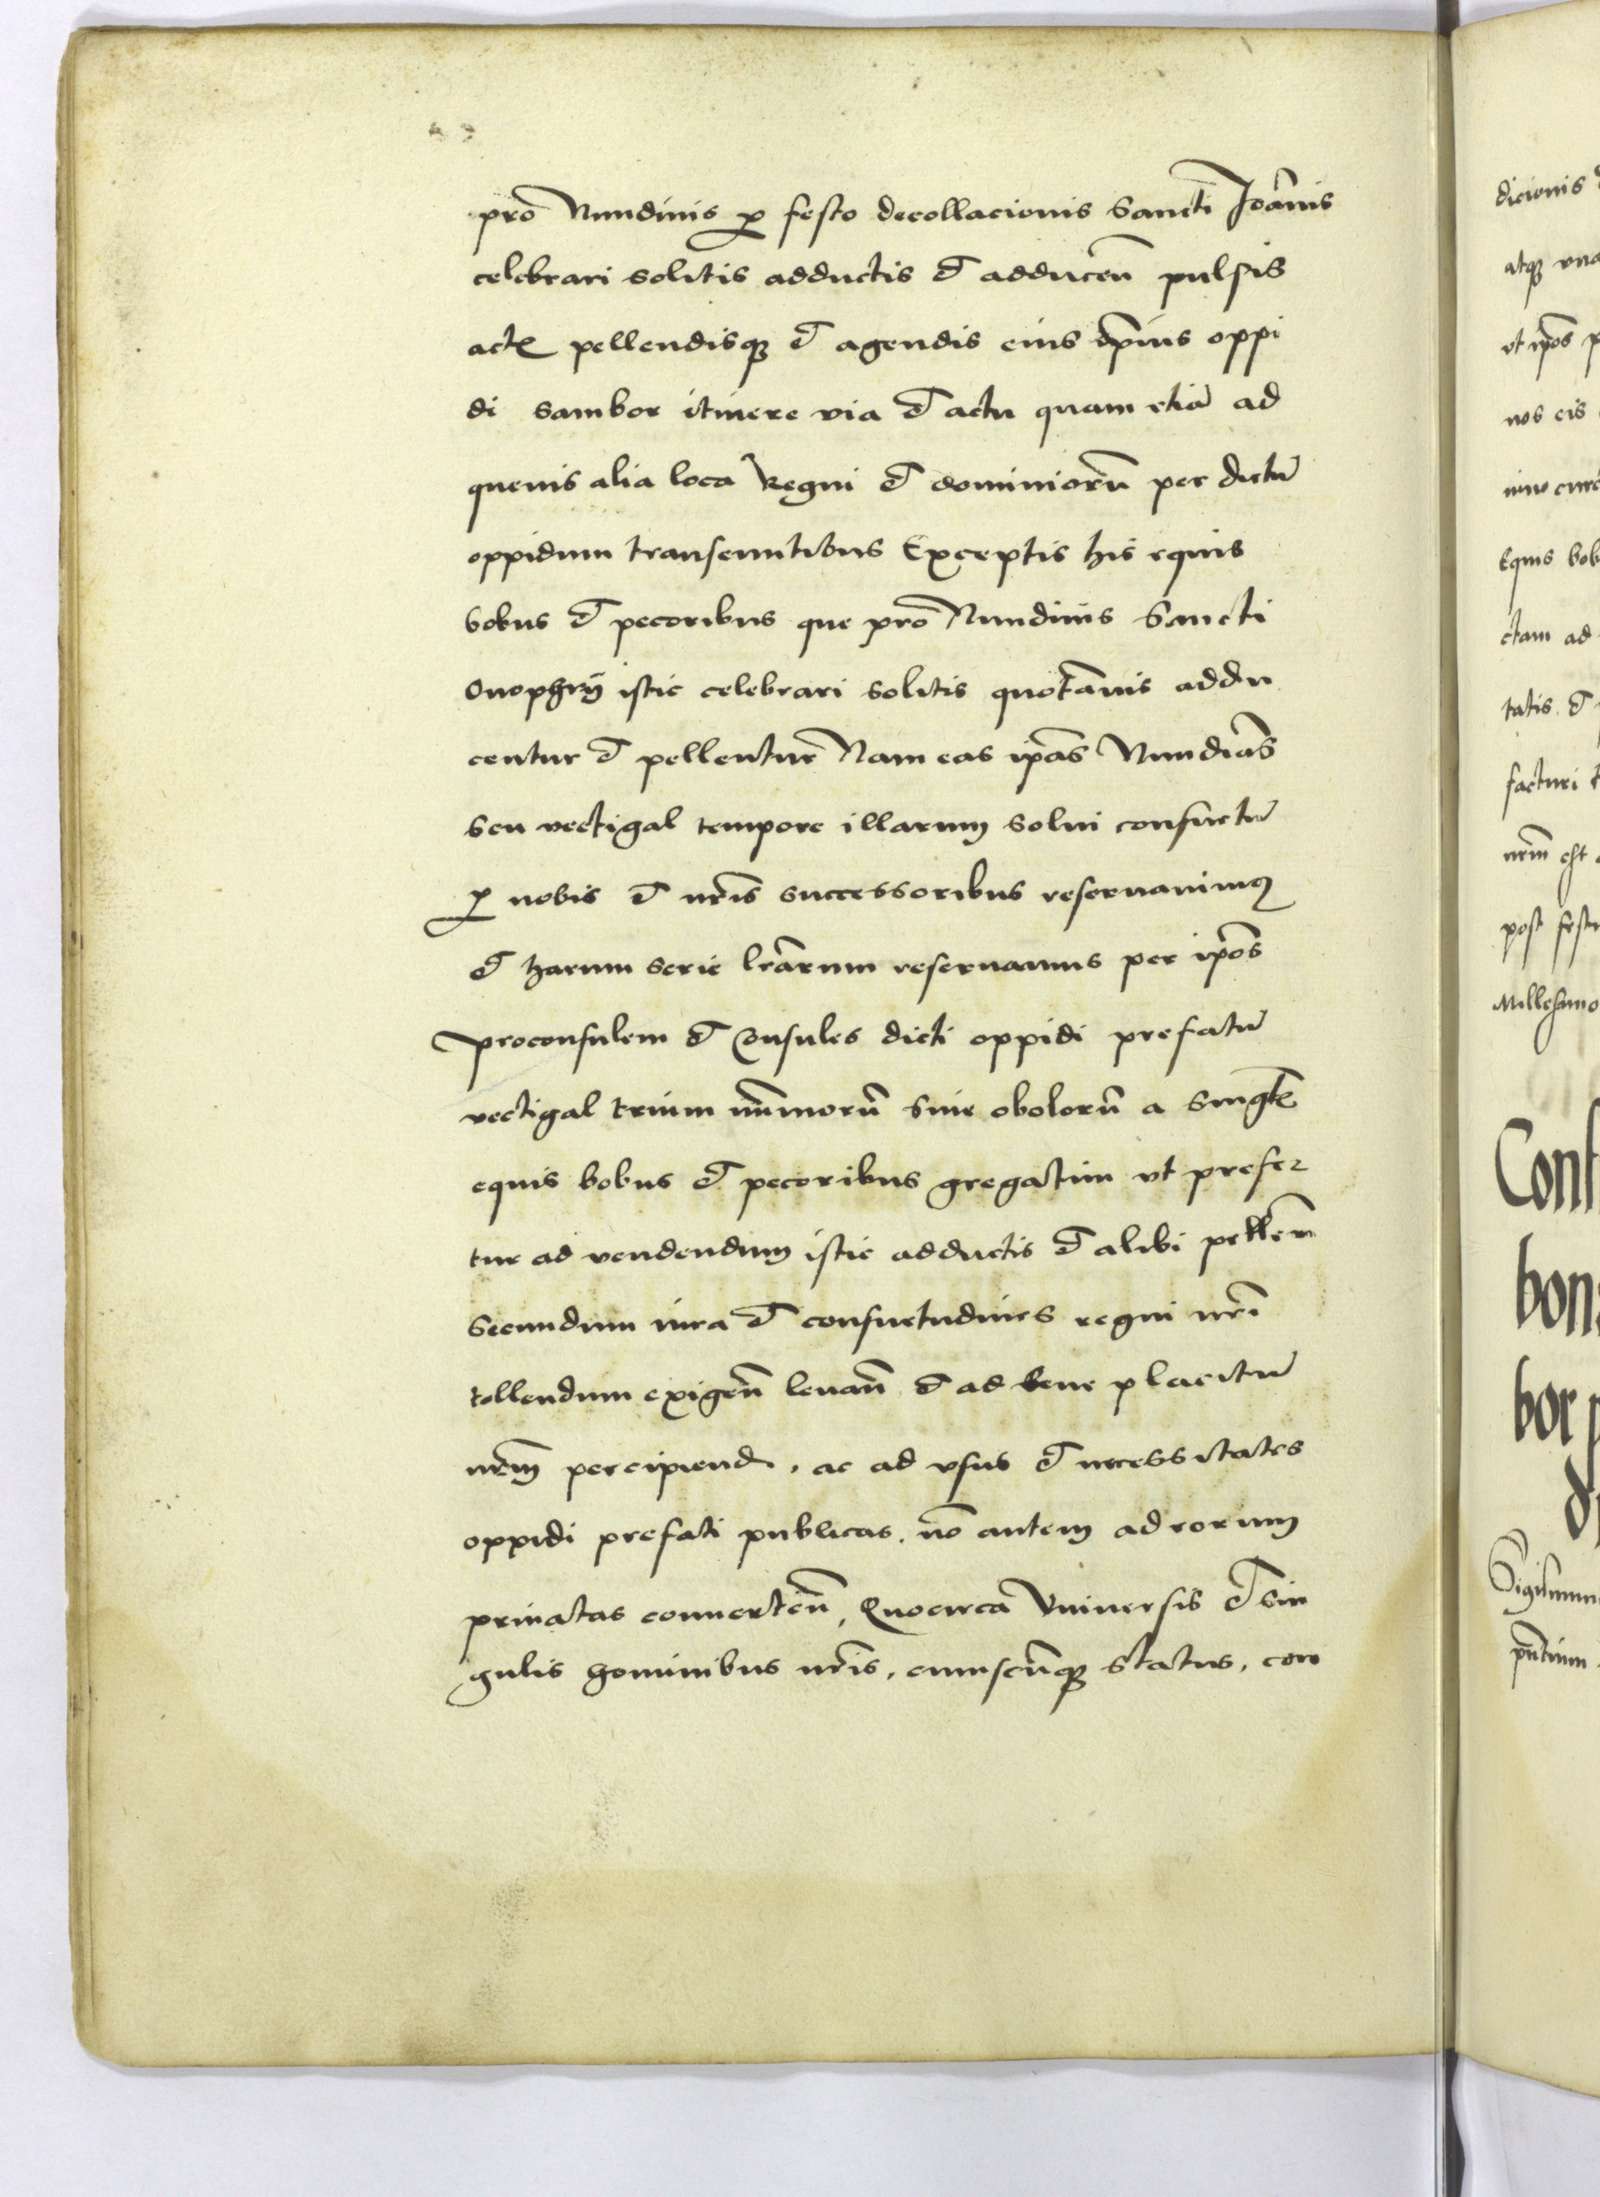 pro Nundinis p festo decollacionis Sancti Ioānis
celebrari solitis adductis et adducen̄ pulsis
act pellendisq3 et agendis eius dp̄ius oppi
di Sambor itinere via et actu quam etiā ad
quenis alia loca Regni et dominiorū per dictū
oppidum transeuntibus Exceptis his equis
bobus et pecoribus que pro Nundinis Sancti
Onophrij istic celebrari solitis quotānis addu
centur et pellentur Nam eas ip̄as Nundinās
seu vectigal tempore illarum solui consuetū
p nobis et nr̄is successoribus reseruauimus
et harum serie lr̄arum reseruamus per ip̄os
proconsulem et Consules dicti oppidi prefatū
vectigal trium num̄morū siue obolorū a singtꝭ
equis bobus et pecoribus gregatim vt prefer
tur ad vendendum istic adductis et alibi pellen̄
Secundum iura et consuetudines regni nr̄i
tollendum exigen̄ leuan̄ et ad bene placitū
nr̄m percipiend. ac ad vsus et necessitates
oppidi prefati publicas. nō autem ad eorum
priuatas conuerten̄, Quocirca Vniuersis et sin
gulis hominibus nr̄is, cuiuscūq3 status, con
dicionis
atq3
vt ip̄os
nos eis
Equis
etam ad
tatis et
facturi
nr̄m est
post
Millesimo